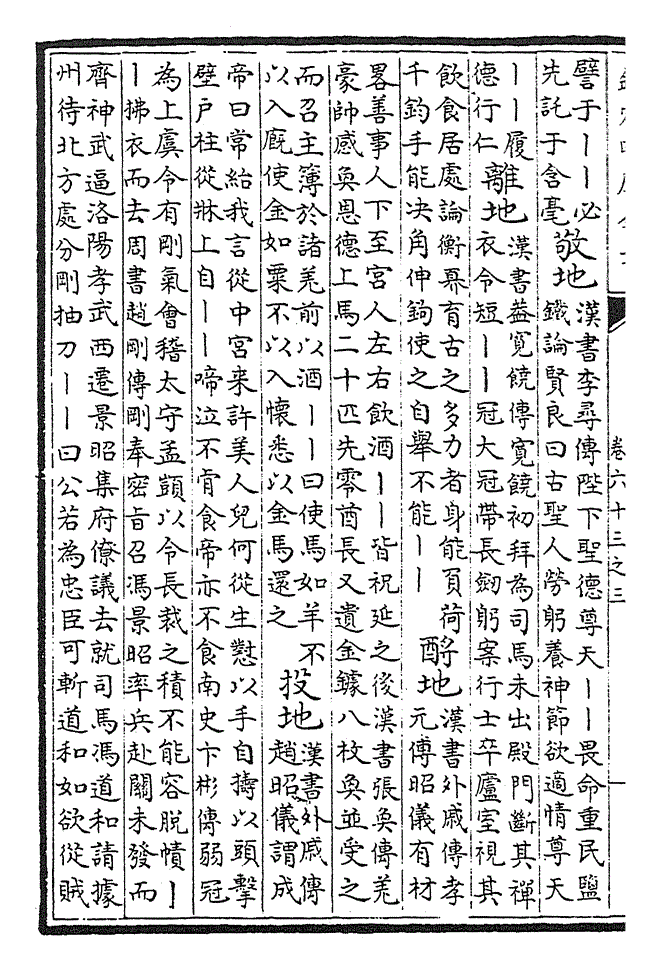 卷六十三之三
譬于丨丨必
先託于含毫
敬地
漢書李尋傳陛下聖德尊天丨丨畏命重民鹽
鐵論賢良曰古聖人勞躬養神節欲適情尊天
丨丨履
德行仁
離地
漢書葢寛饒傳寛饒初拜為司馬未出殿門斷其襌
衣令短丨丨冠大冠帶長劒躬案行士卒廬室視其
飲食居處論衡奡育古之多力者身能負荷
千鈞手能决角伸鉤使之自舉不能丨丨
酹地
漢書外戚傳孝
元傳昭儀有材
畧善事人下至宫人左右飲酒丨丨皆祝延之後漢書張奐傳羌
豪帥感奐恩德上馬二十匹先零酋長又遺金鐻八枚奐並受之
而召主簿於諸羌前以酒丨丨曰使馬如羊不
以入厩使金如粟不以入懷悉以金馬還之
投地
漢書外戚傳
趙昭儀謂成
帝曰常紿我言從中宫来許美人兒何從生懟以手自擣以頭擊
壁户柱從牀上自丨丨啼泣不肯食帝亦不食南史卞彬傳弱冠
為上虞令有剛氣會稽太守孟顗以令長裁之積不能容脱幘丨
丨拂衣而去周書趙剛傳剛奉密旨召馮景昭率兵赴闗未發而
齊神武逼洛陽孝武西遷景昭集府僚議去就司馬馮道和請據
州待北方處分剛抽刀丨丨曰公若為忠臣可斬道和如欲從賊